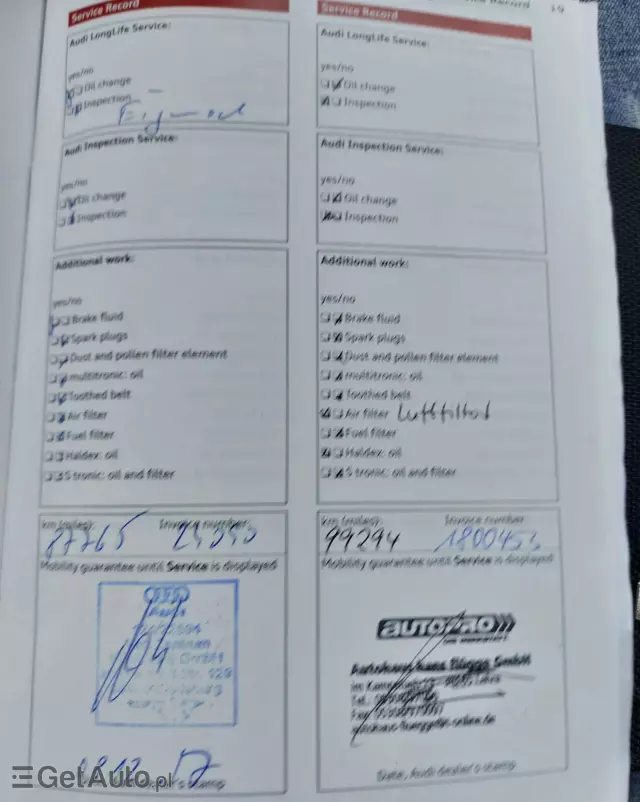 Service Record
Audi LongLife Service:
yes/no
Oil change
Inspection
Audi Inspection Service:
yes/no
Oil change
Inspection
Additional work:
yes/no
Brake fluid
Spark plugs
Dust and pollen filter element
multitronic: oil
Toothed belt
Air filter
Fuel filter
Haldex: oil
S tronic: oil and filter
km (miles): Invoice number
87765
Mobility guarantee until Service is displayed
GmbH
dealer's stamp
Service Record 19
Service Record
Audi LongLife Service:
yes/no
Oil change
Inspection
Audi Inspection Service:
yes/no
Oil change
Inspection
Additional work:
yes/no
Brake fluid
Spark plugs
Dust and pollen filter element
multitronic: oil
Toothed belt
Air filter Luftfilter
Fuel filter
Haldex: oil
S tronic: oil and filter
km (miles): Invoice number
99294 1800453
Mobility guarantee until Service is displayed
AUTOPRO
Autohaus GmbH
Date, Audi dealer's stamp
GetAuto.pl